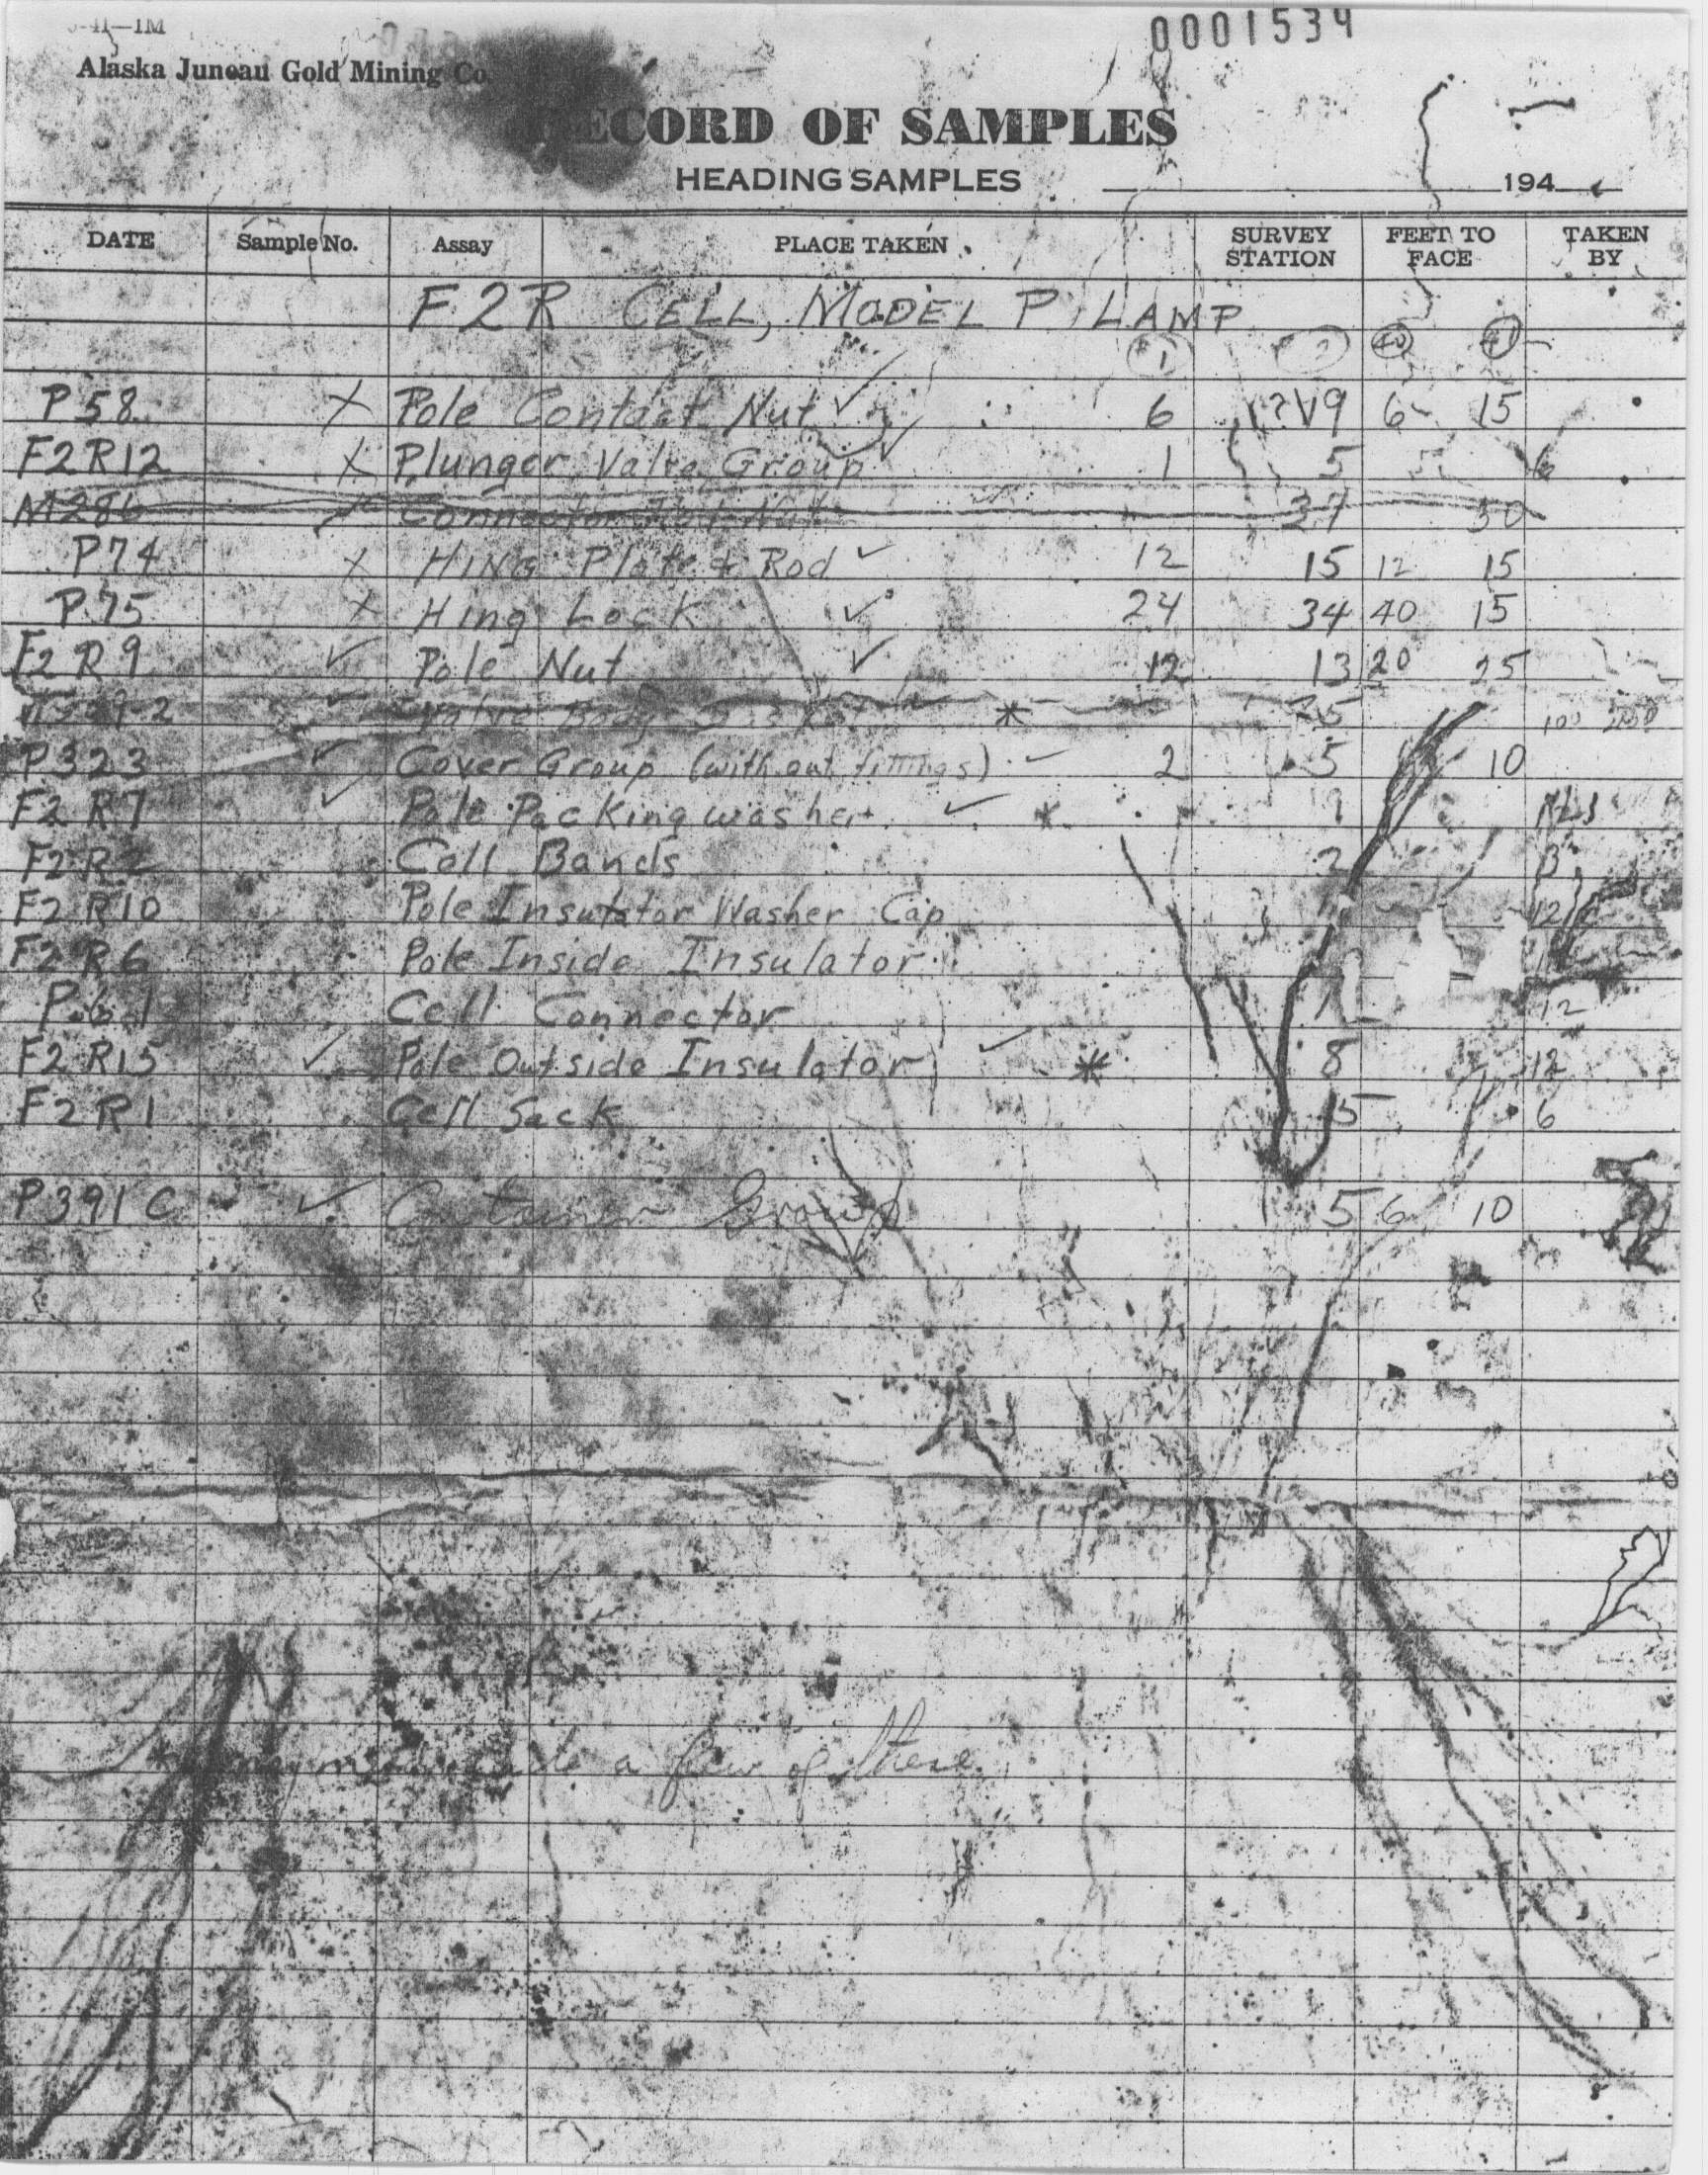 -41—1M
0001534
Alaska Juneau Gold Mining Co.
RECORD OF SAMPLES
HEADING SAMPLES 194
DATE Sample No. Assay PLACE TAKEN SURVEY STATION FEET TO FACE TAKEN BY
F2R CELL, MODEL P LAMP
1 40 41
P58 X Pole Contact Nut ✓ 6 9 6 15
F2R12 X Plunger Valve Group ✓ 1 5 6
M286 Connector Nut 37 50
P74 X HING Plate + Rod ✓ 12 15 12 15
P75 X Hing Lock ✓ 24 34 40 15
F2R9 ✓ Pole Nut ✓ 12 13 20 25
Valve Body * 100
P323 ✓ Cover Group (without fittings) ✓ 2 5 10
F2R7 ✓ Pole Packing washer ✓ * 9
F2R2 Cell Bands 2 3
F2R10 Pole Insulator Washer Cap 12
F2R6 Pole Inside Insulator
Cell Connector 12
F2R15 ✓ Pole Outside Insulator ✓ * 8 12
F2R1 Cell Sack 15 6
P391C ✓ Container Group 5 6 10
* a few of these